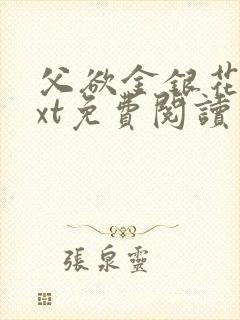 父欲金银花
xt免費閱讀
張泉靈